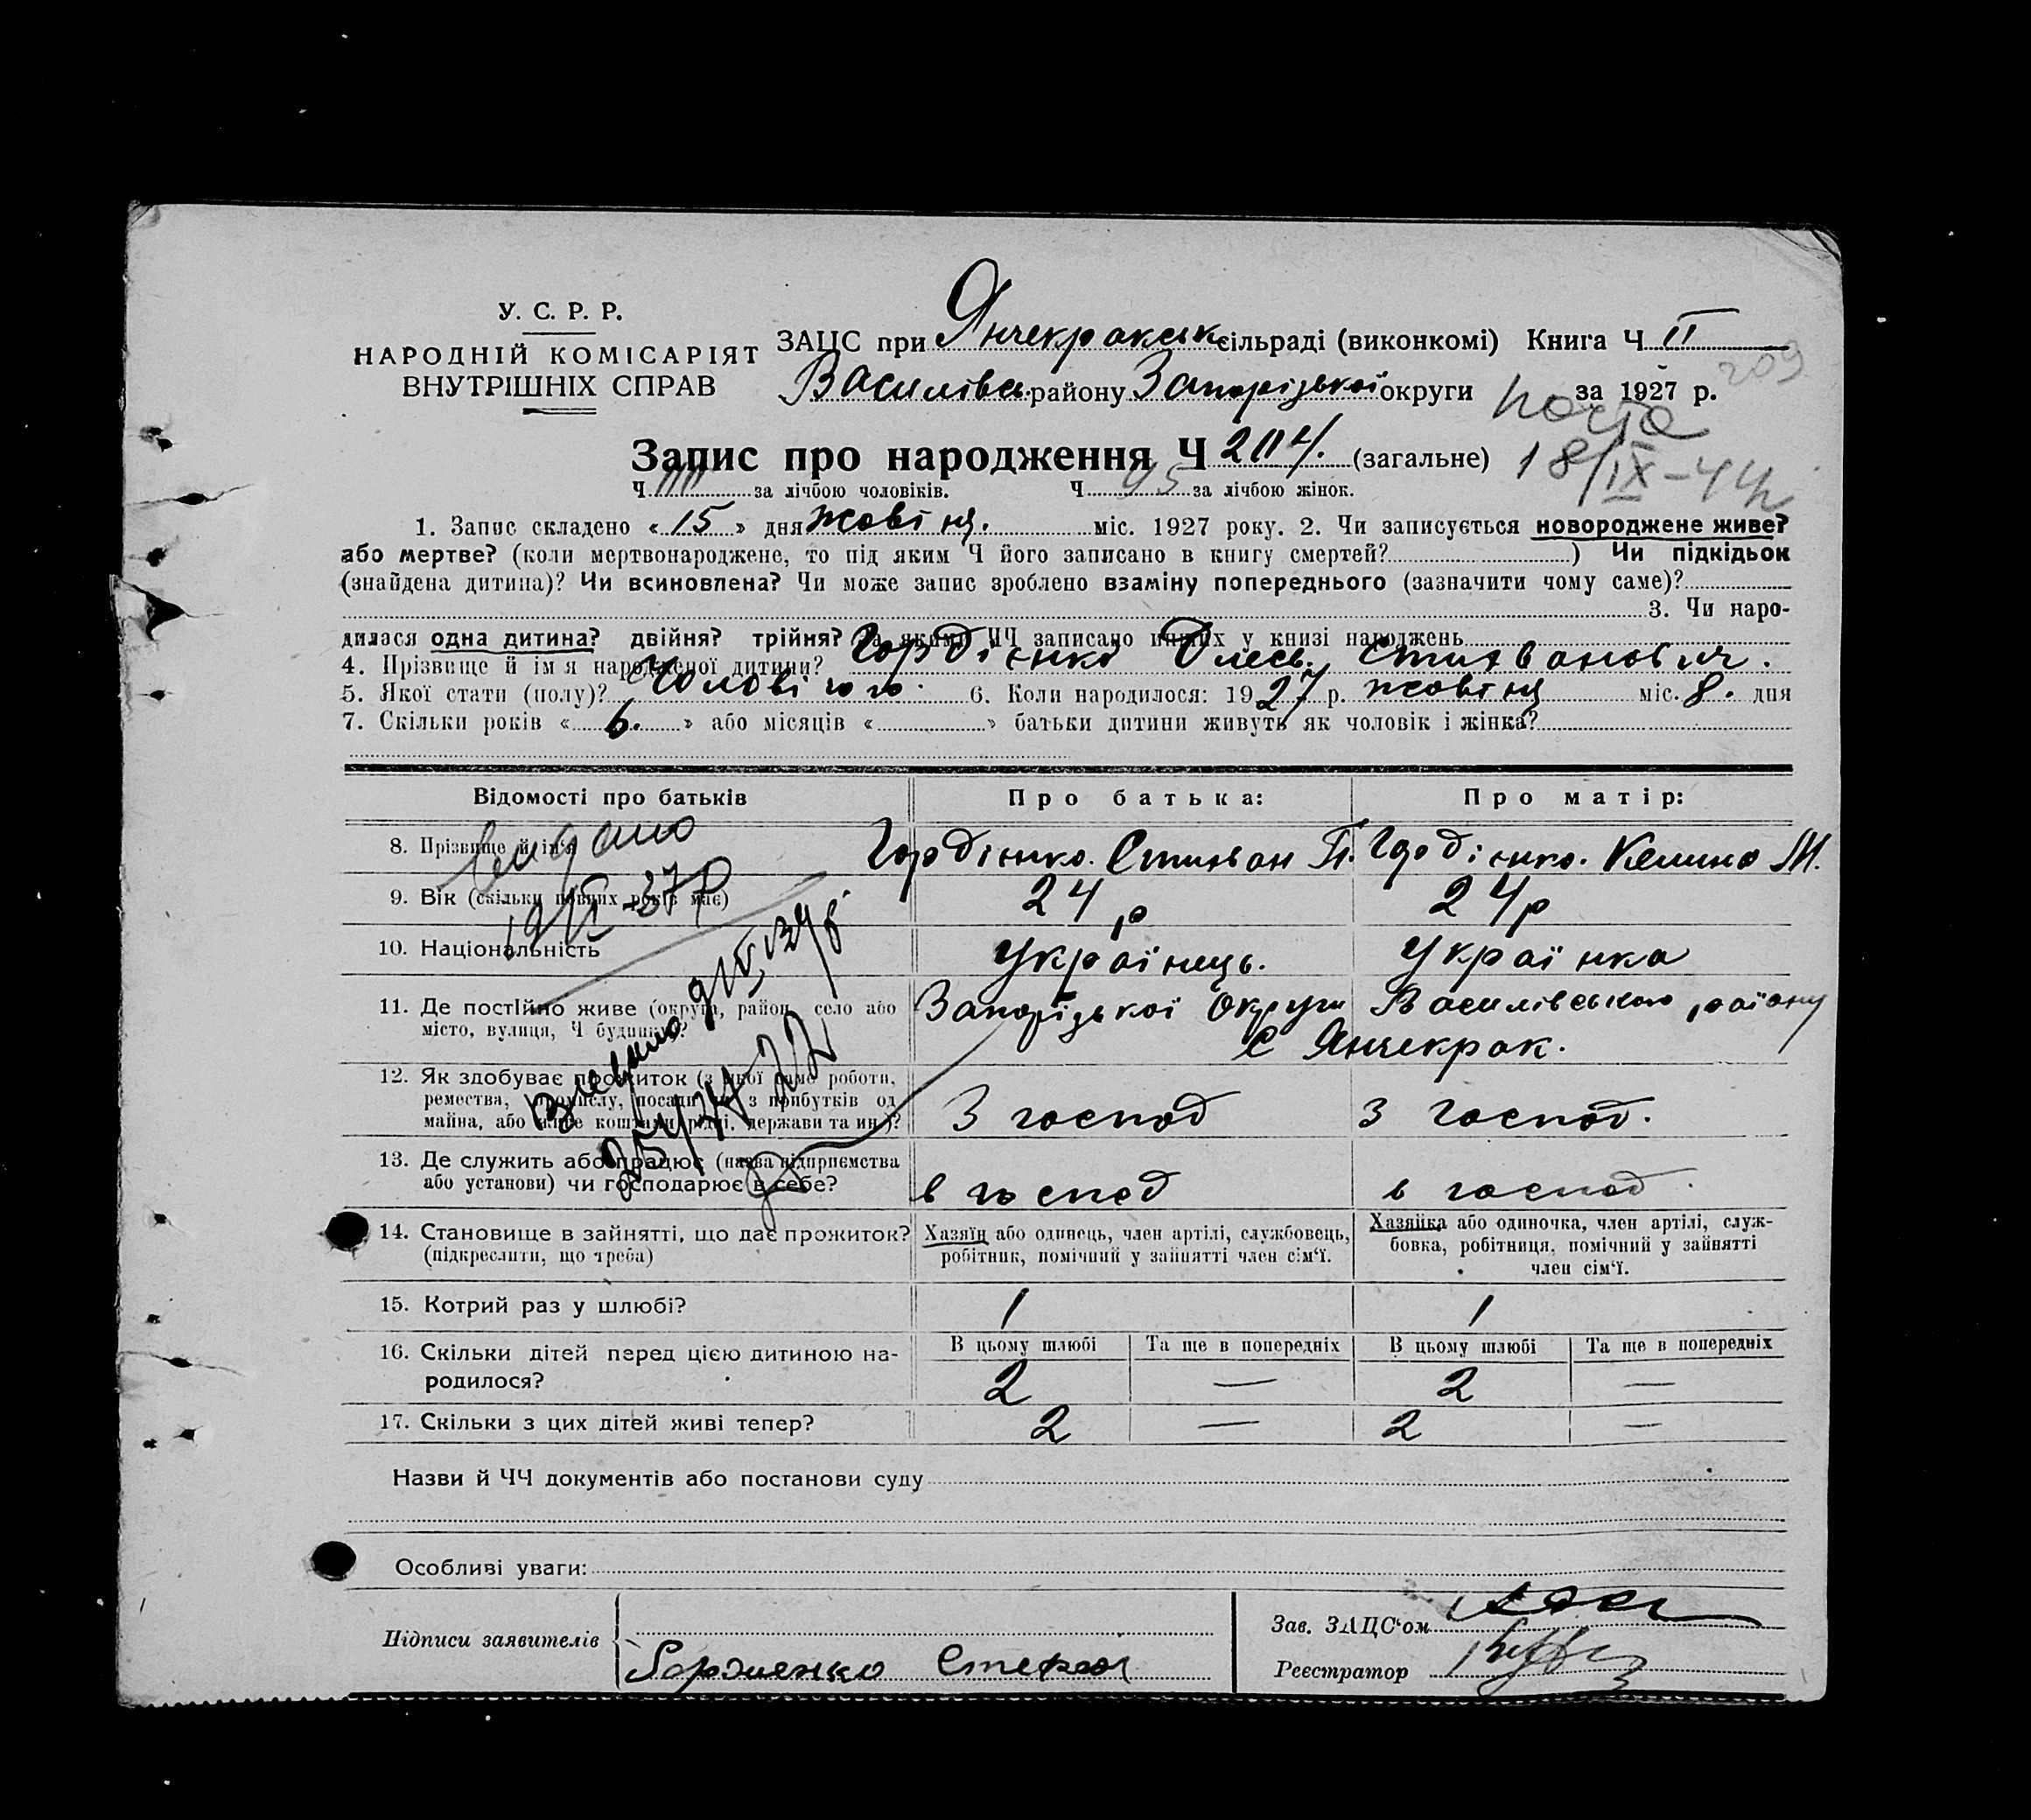 У. С. Р. Р.
НАРОДНІЙ КОМІСАРІЯТ
ВНУТРІШНІХ СПРАВ
ЗАЦС при Янчекракськ сільраді (виконкомі) Книга Ч II
209
Василівськ району Запорізької округи за 1927 р.
Запис про народження Ч 204. (загальне)
18/IX-44р
Ч за лічбою чоловіків. Ч 95 за лічбою жінок.
1. Запис складено « 15 » дня жовтня. міс. 1927 року. 2. Чи записується новороджене живе?
або мертве? (коли мертвонароджене, то під яким Ч його записано в книгу смертей? ) Чи підкідьок
(знайдена дитина)? Чи всиновлена? Чи може запис зроблено взаміну попереднього (зазначити чому саме)?
3. Чи наро-
дилася одна дитина? двійня? трійня? За якими ЧЧ записано инших у книзі народжень
4. Прізвище й ім'я народженої дитини? Гордієнко Олесь. Стихванович.
5. Якої стати (полу)? Чоловічого. 6. Коли народилося: 1927 р. жовтня міс. 8. дня
7. Скільки років « 6. » або місяців « » батьки дитини живуть як чоловік і жінка?
Відомості про батьків Про батька: Про матір:
8. Прізвище й ім'я Гордієнко. Стихван П. Гордієнко. Келино М.
видано
9. Вік (скільки повних років має) 24 р 24 р
10. Національність Українець. Українка
11. Де постійно живе (округа, район, село або Запорізької Округи Василівського району
місто, вулиця, Ч будинку)? С Янчекрак.
12. Як здобуває прожиток (з якої саме роботи,
ремества, промислу, посади чи з прибутків од З господ З господ.
майна, або живе коштами рідні, держави та ин.)?
13. Де служить або працює (назва підприємства
або установи) чи господарює в себе? в господ в господ.
14. Становище в зайнятті, що дає прожиток? Хазяїн або одинець, член артілі, службовець, Хазяйка або одиночка, член артілі, служ-
(підкреслити, що треба) робітник, помічний у зайнятті член сім'ї. бовка, робітниця, помічний у зайнятті
член сім'ї.
15. Котрий раз у шлюбі? 1 1
16. Скільки дітей перед цією дитиною на- В цьому шлюбі Та ще в попередніх В цьому шлюбі Та ще в попередніх
родилося? 2 — 2 —
17. Скільки з цих дітей живі тепер? 2 — 2 —
Назви й ЧЧ документів або постанови суду
Особливі уваги:
Підписи заявителів
Зав. ЗАЦС'ом
Реєстратор